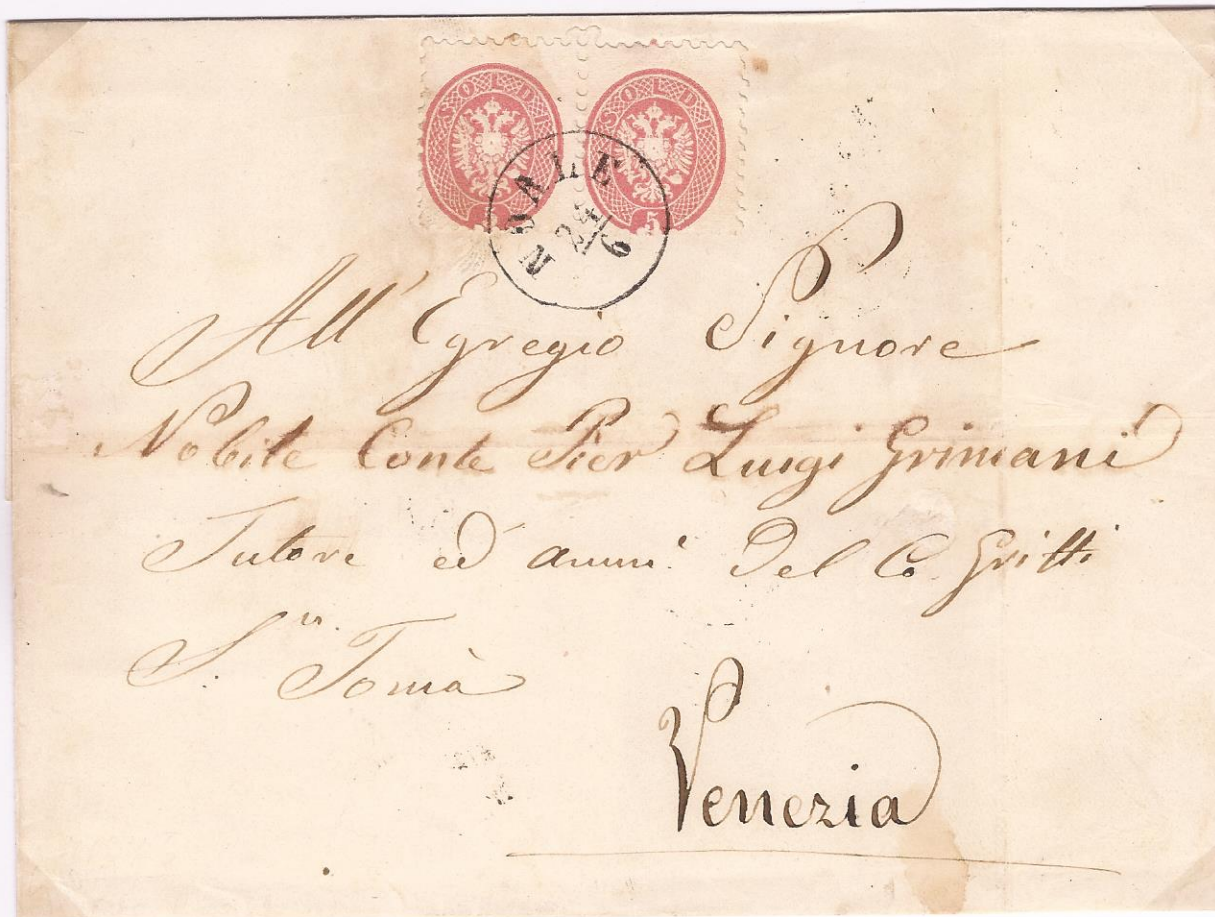 SOLDI SOLDI
5 5
NOALE
24/6
All' Egregio Signore
Nobile Conte Pier Luigi Grimani
Tutore ed amm.e Del Co. Gritti
S.n Tomà
Venezia